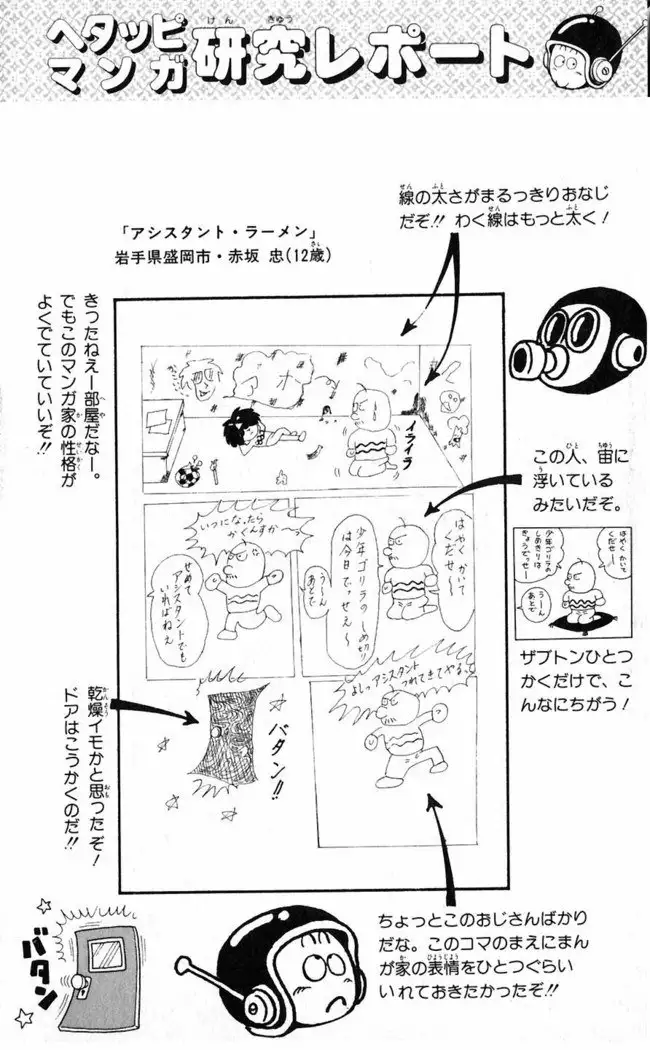 ヘタッピ
マンガ
研究レポート
けん
きゅう
線の太さがまるっきりおなじ
だぞ!! わく線はもっと太く！
せん
ふと
「アシスタント・ラーメン」
岩手県盛岡市・赤坂 忠(12歳)
さい
きったねえー部屋だなー。
でもこのマンガ家の性格が
よくでていていいぞ!!
へや
か
せいかく
アホ
イライラ
この人、宙に
浮いている
みたいだぞ。
ひと
ちゅう
う
はやくかいて
くだせ〜
少年ゴリラのしめ切り
は今日でっせえ〜
うーん
あとで
いつになったら
かくんすか〜っ
せめて
アシスタントでも
いればねえ
はやくかいて
くだせー
少年ゴリラの
しめきりは
きょうでっせー
うーん
あとで
ザブトンひとつ
かくだけで、こ
んなにちがう！
よしっアシスタント
つれてきてやるっ
バタン!!
乾燥イモかと思ったぞ！
ドアはこうかくのだ!!
かんそう
おも
バタン
ちょっとこのおじさんばかり
だな。このコマのまえにまん
が家の表情をひとつぐらい
いれておきたかったぞ!!
か
ひょうじょう